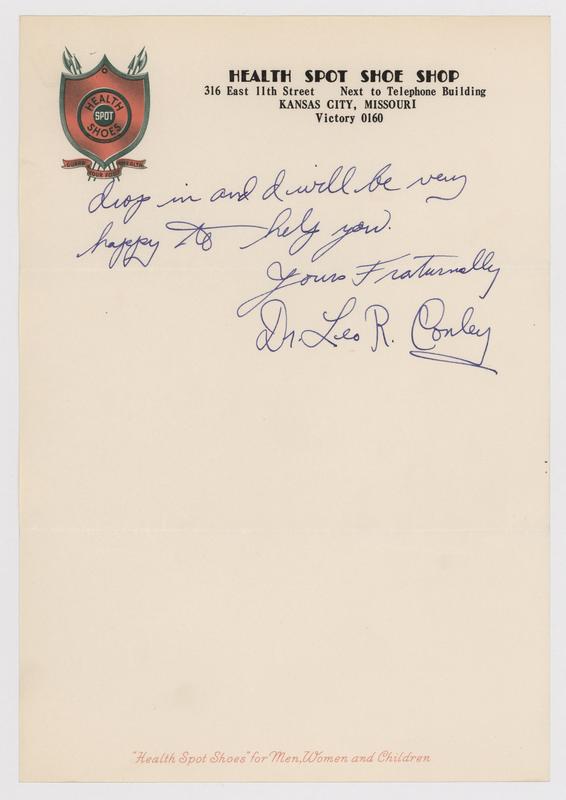 HEALTH SPOT SHOE SHOP
316 East 11th Street Next to Telephone Building
KANSAS CITY, MISSOURI
Victory 0160
HEALTH
SPOT
SHOES
GUARD YOUR FOOT HEALTH
drop in and I will be very
happy to help you.
Yours Fraturnally
Dr. Leo R. Conley
"Health Spot Shoes" for Men, Women and Children